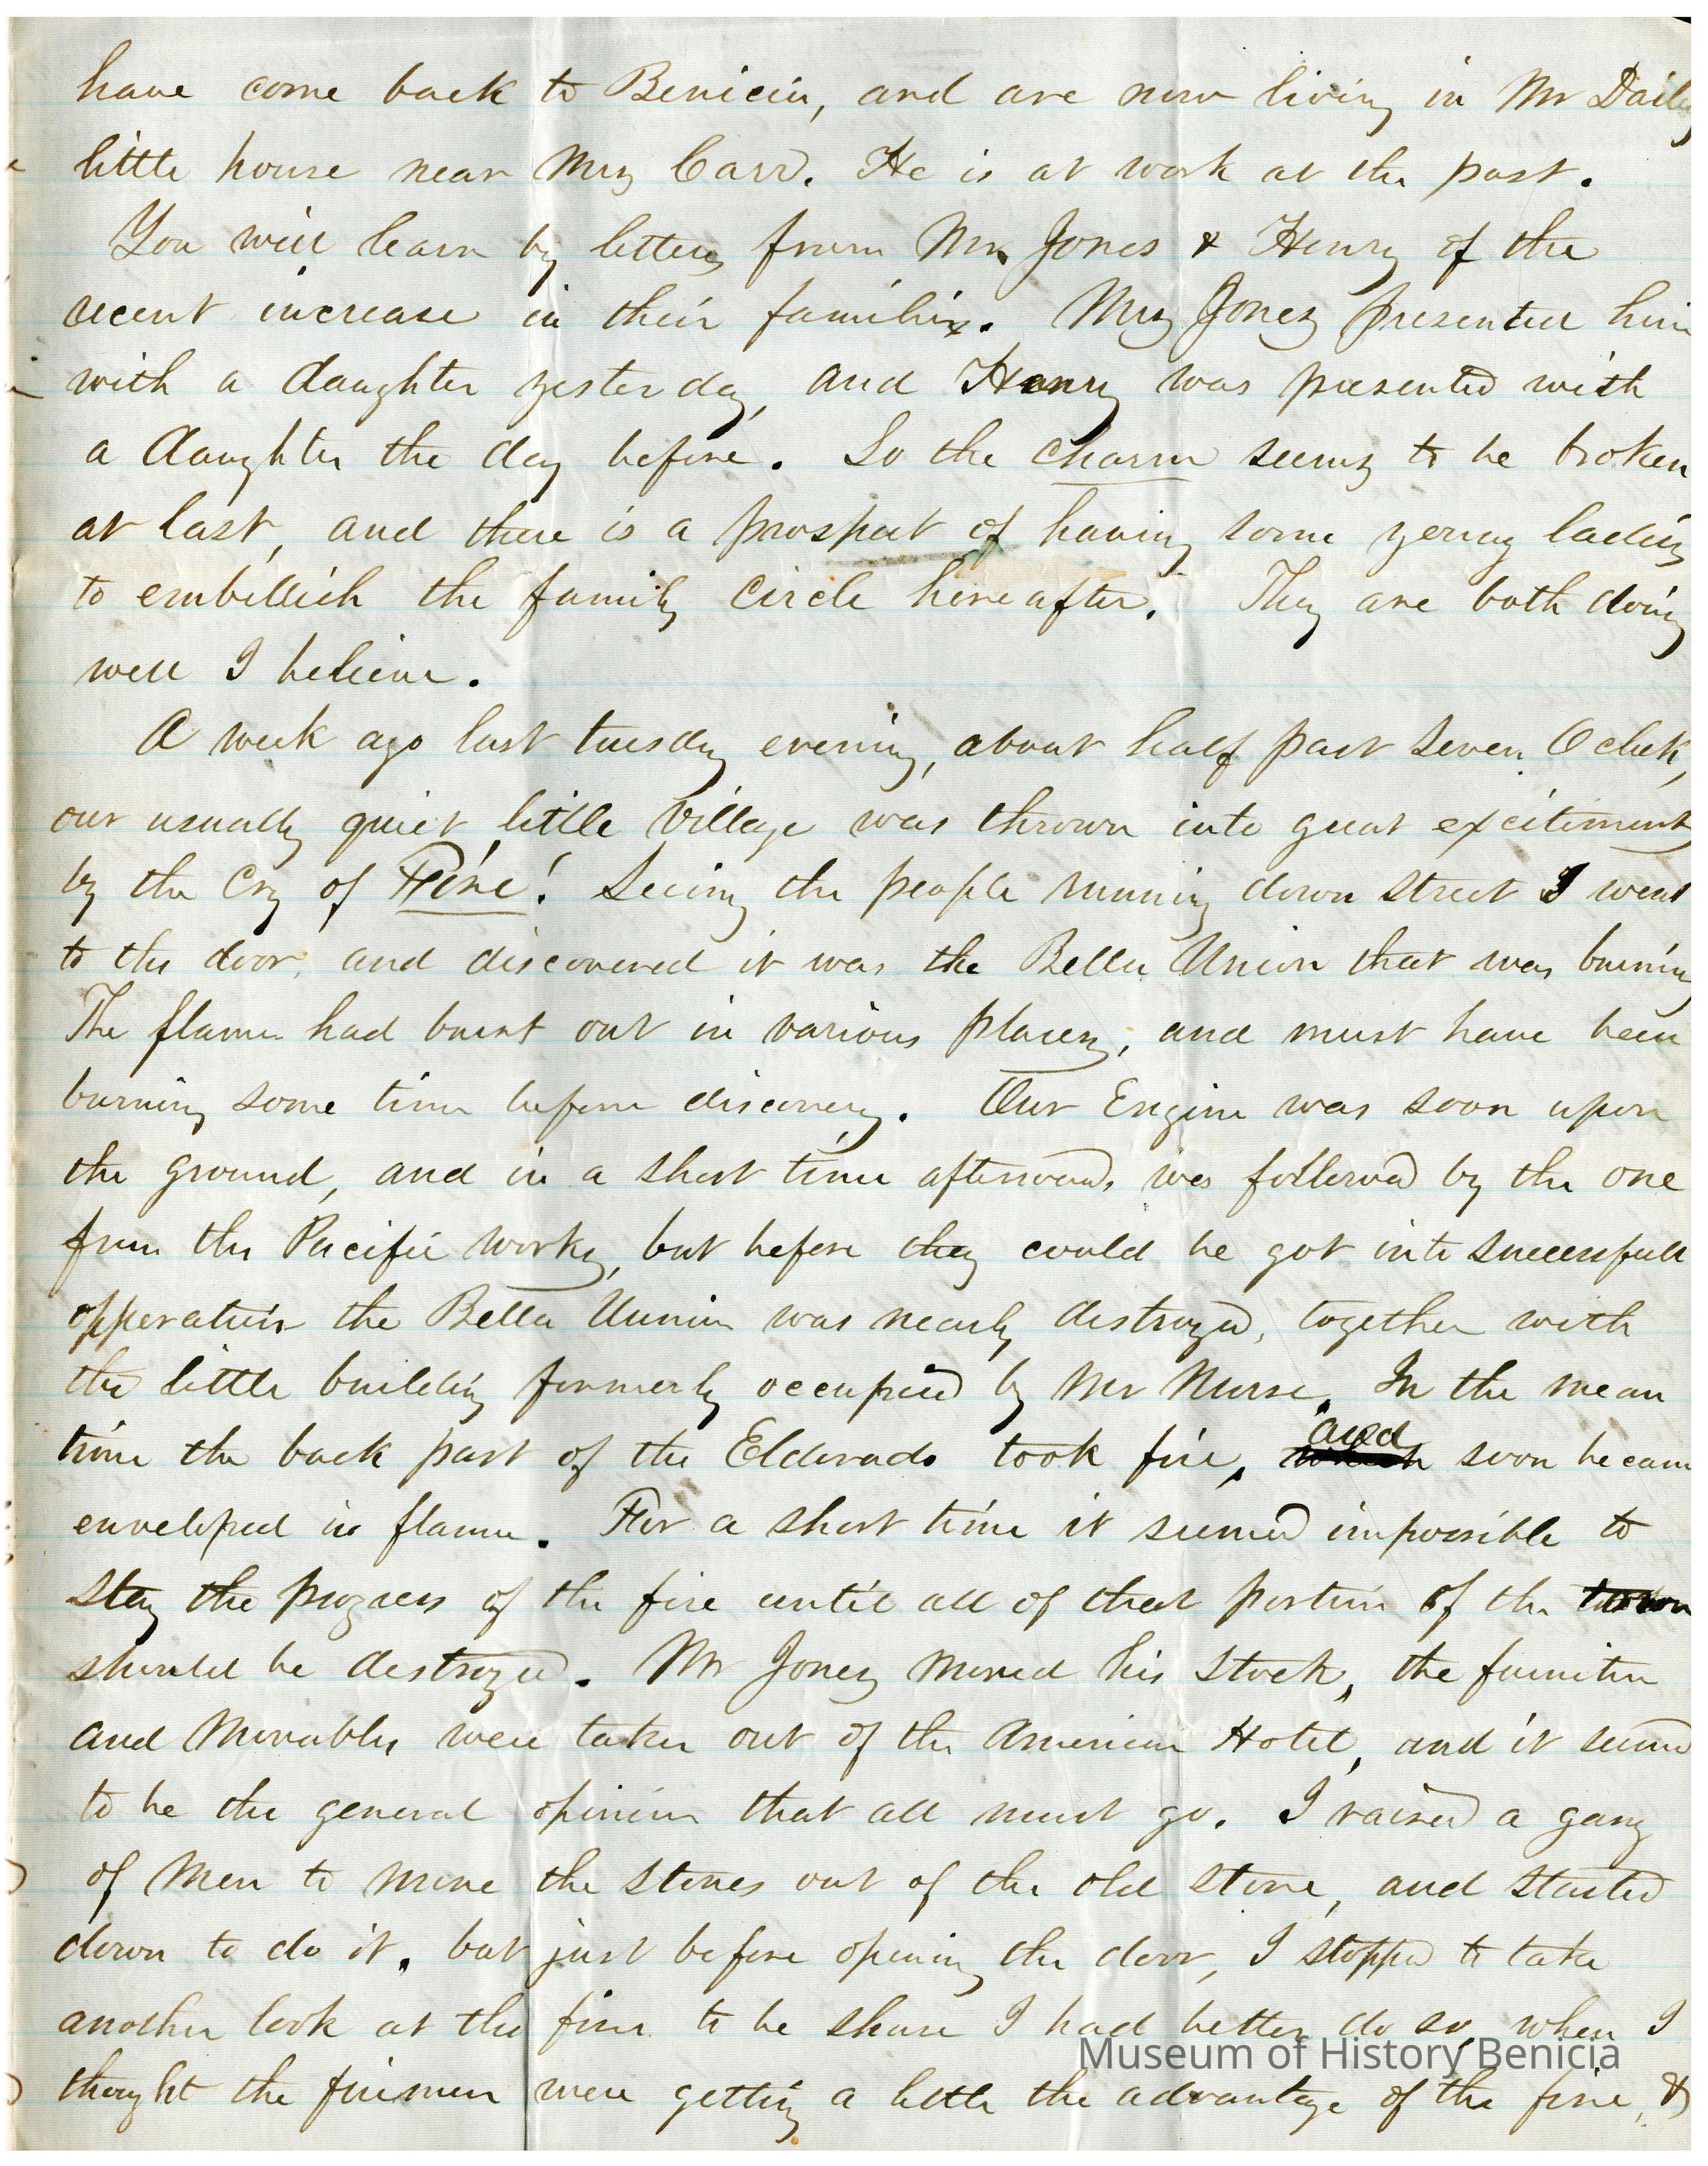 have come back to Benicia, and are now living in Mr Daily
little house near Mrs Carr. He is at work at the post.
You will learn by letters from Mr Jones & Henry of the
recent increase in their families. Mrs Jones presented him
with a daughter yesterday, and Henry was presented with
a daughter the day before. So the charm seems to be broken
at last, and there is a prospect of having some young ladies
to embellish the family circle hereafter. They are both doing
well I believe.
A week ago last tuesday evening, about half past seven O clck,
our usually quiet little village was thrown into great excitement
by the cry of Fire! Seeing the people running down street I went
to the door, and discovered it was the Bella Union that was burning
The flame had burst out in various places, and must have been
burning some time before discovery. Our Engine was soon upon
the ground, and in a short time afterwards was followed by the one
from the Pacific works, but before they could be got into successfull
opperation the Bella Uunion was nearly destroyed, together with
the little building formerly occupied by Mr Nurse. In the mean
time the back part of the Eldorado took fire, and soon became
enveloped in flame. For a short time it seemed impossible to
stay the progress of the fire until all of that portion of the town
should be destroyed. Mr Jones moved his stock, the furniture
and Movables were taken out of the American Hotel, and it seemed
to be the general opinion that all must go. I raised a gang
of men to move the stones out of the old store, and started
down to do it. but just before opening the door, I stopped to take
another look at the fire to be shure I had better do so, when I
thought the firemen were getting a little the advantage of the fire, &
Museum of History Benicia